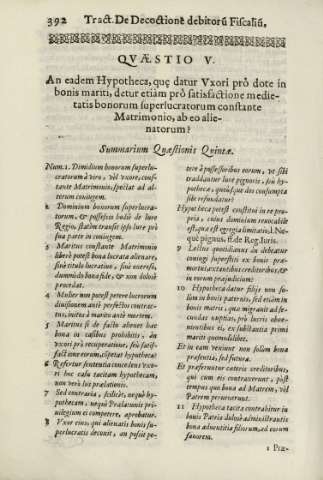 392 Tract. De Decoctione debitorũ Fiscaliũ,
QVÆSTIO V.
An eadem Hypotheca, quę datur Vxori prò dote in
bonis mariti, detur etiàm prò satisfactione medie-
tatis bonorum superlucratorum constante
Matrimonio, ab eo alie-
natorum?
Summarium Quæstionis Quintæ.
Num. 1. Dimidium bonorum superlu-
cratorum à viro, vèl vxore, const
tante Matrimonio, spectat ad al-
terum coniugem.
2 Dominium bonorum superlucra-
torum, & possessio hodiè de iure
Regio, statìm transit ipso iure prò
sua parte in coniugem.
3 Maritus constante Matrimonio
liberè potest bona lucrata alienare,
sivè titulo lucrativo, sivè oneroso,
dummodo bona fide, & non dolosè
procedat.
4 Mulier non potest petere lucrorum
divisionem antè perfectos contrac-
tus, initos à marito antè mortem.
5 Maritus si de facto abonet hæc
bona in casibus prohibitis, àn
vxori prò recuperatione, seù satis-
factione eorum, cõpetat hypotheca?
6 Refertur sententia concedens vxo-
ri hoc casu tacitam hypothecam,
non verò ius prælationis.
7 Sed contraria, scilicèt, neque hy-
pothecam, neque Prælationis pri-
vilegium ei competere, aprobatur.
8 Vxor eius, qui alienatis bonis su-
perlucratis decoxit, an possit pe-
tere à possessoribus eorum, vt sibi
tradantur iure pignoris, seù hy-
pothecæ, quousque des consumpta
sibi refundatur?
Hypotheca potest constitui in re pro-
pria, cuius dominium revocabile
est, quæ est egregia limitatio, l. Ne-
què pignus, ff. de Reg. Iuris.
9
coniugi superstiti ex bonis præ-
mortui extantibus creditoribus, &
in eorum præiudicium?
10 Hypotheca datur filijs non so-
lùm in bonis paternis, sed etiàm in
bonis matris, quæ migravit ad se-
cundas nuptias, prò lucris obve-
nientibus ei, ex substantia primi
mariti quomodolibet.
Et in eam veniunt non solùm bona
præsentia, sed futura.
Et præferuntur cæteris creditoribus,
qui cum eis contraxerunt, post
tempus quo bona ad Matrem, vèl
Patrem pervenerunt.
11 Hypotheca tacita contrahitur in
bonis Patris dolosè administrantis
bona adventitia filiorum, ad eorum
favorem.
1 Præ-